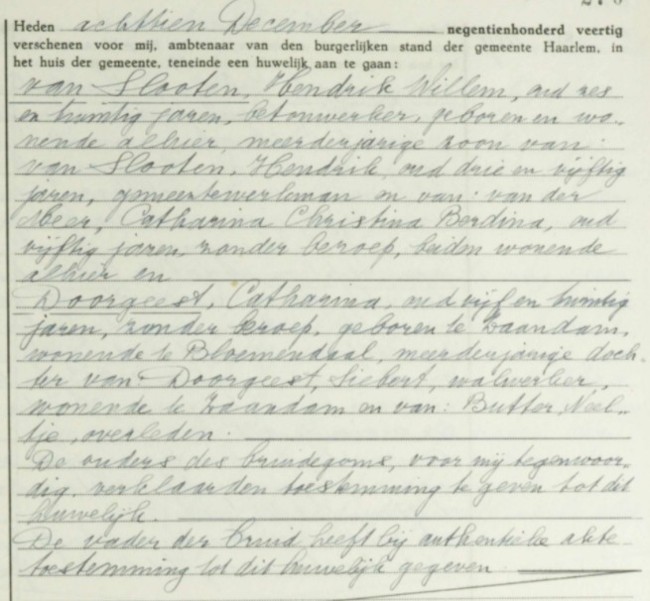 Heden achttien December negentienhonderd veertig
verschenen voor mij, ambtenaar van den burgerlijken stand der gemeente Haarlem, in
het huis der gemeente, teneinde een huwelijk aan te gaan:
van Slooten, Hendrik Willem, oud zes
en twintig jaren, betonwerker, geboren en wo-
nende alhier, meerderjarige zoon van:
van Slooten, Hendrik, oud drie en vijftig
jaren, gemeentewerkman en van: van der
Meer, Catharina Christina Berdina, oud
vijftig jaren, zonder beroep, beiden wonende
alhier en
Doorgeest, Catharina, oud vijf en twintig
jaren, zonder beroep, geboren te Zaandam,
wonende te Bloemendaal, meerderjarige doch-
ter van: Doorgeest, Siebert, walwerker,
wonende te Zaandam en van: Butter, Neel-
tje, overleden.
De ouders des bruidegoms, voor mij tegenwoor-
dig, verklaarden toestemming te geven tot dit
huwelijk.
De vader der bruid heeft bij authentieke akte
toestemming tot dit huwelijk gegeven